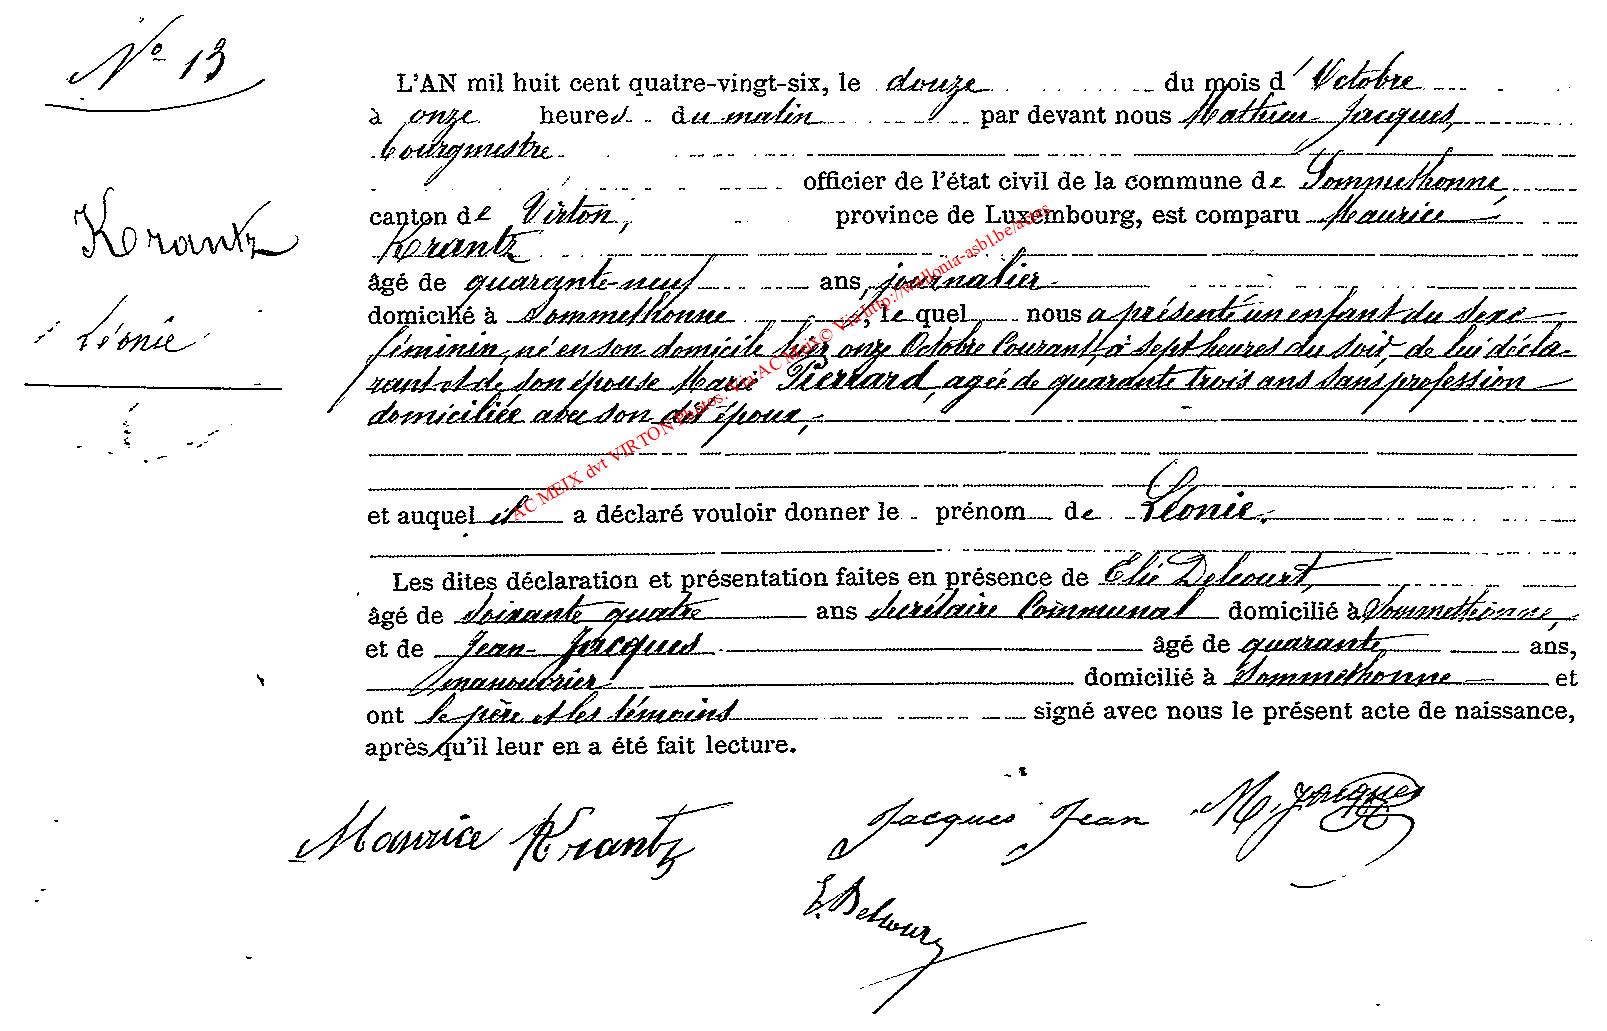 N° 13
Krantz
Léonie
L'AN mil huit cent quatre-vingt-six, le douze du mois d' Octobre
à onze heures du matin par devant nous Mathieu Jacques,
bourgmestre
officier de l'état civil de la commune de Sommethonne,
canton de Virton, province de Luxembourg, est comparu Maurice
Krantz
âgé de quarante-neuf ans, journalier
domicilié à Sommethonne, le quel nous a présenté un enfant du sexe
féminin, né en son domicile hier onze Octobre Courant, à sept heures du soir, de lui décla-
rant et de son épouse Marie Pierrard, agée de quarante trois ans sans profession
domiciliée avec son dit époux,
et auquel il a déclaré vouloir donner le prénom de Léonie.
Les dites déclaration et présentation faites en présence de Elie Delcourt,
âgé de soixante quatre ans Secrétaire Communal domicilié à Sommethonne,
et de Jean Jacques âgé de quarante ans,
manouvrier domicilié à Sommethonne et
ont le père et les témoins signé avec nous le présent acte de naissance,
après qu'il leur en a été fait lecture.
Maurice Krantz
Jacques Jean
M. Jacques
E. Delcourt
AC MEIX dvt VIRTON Photos. Via AC Meix © Via http://wallonia-asbl.be/actes